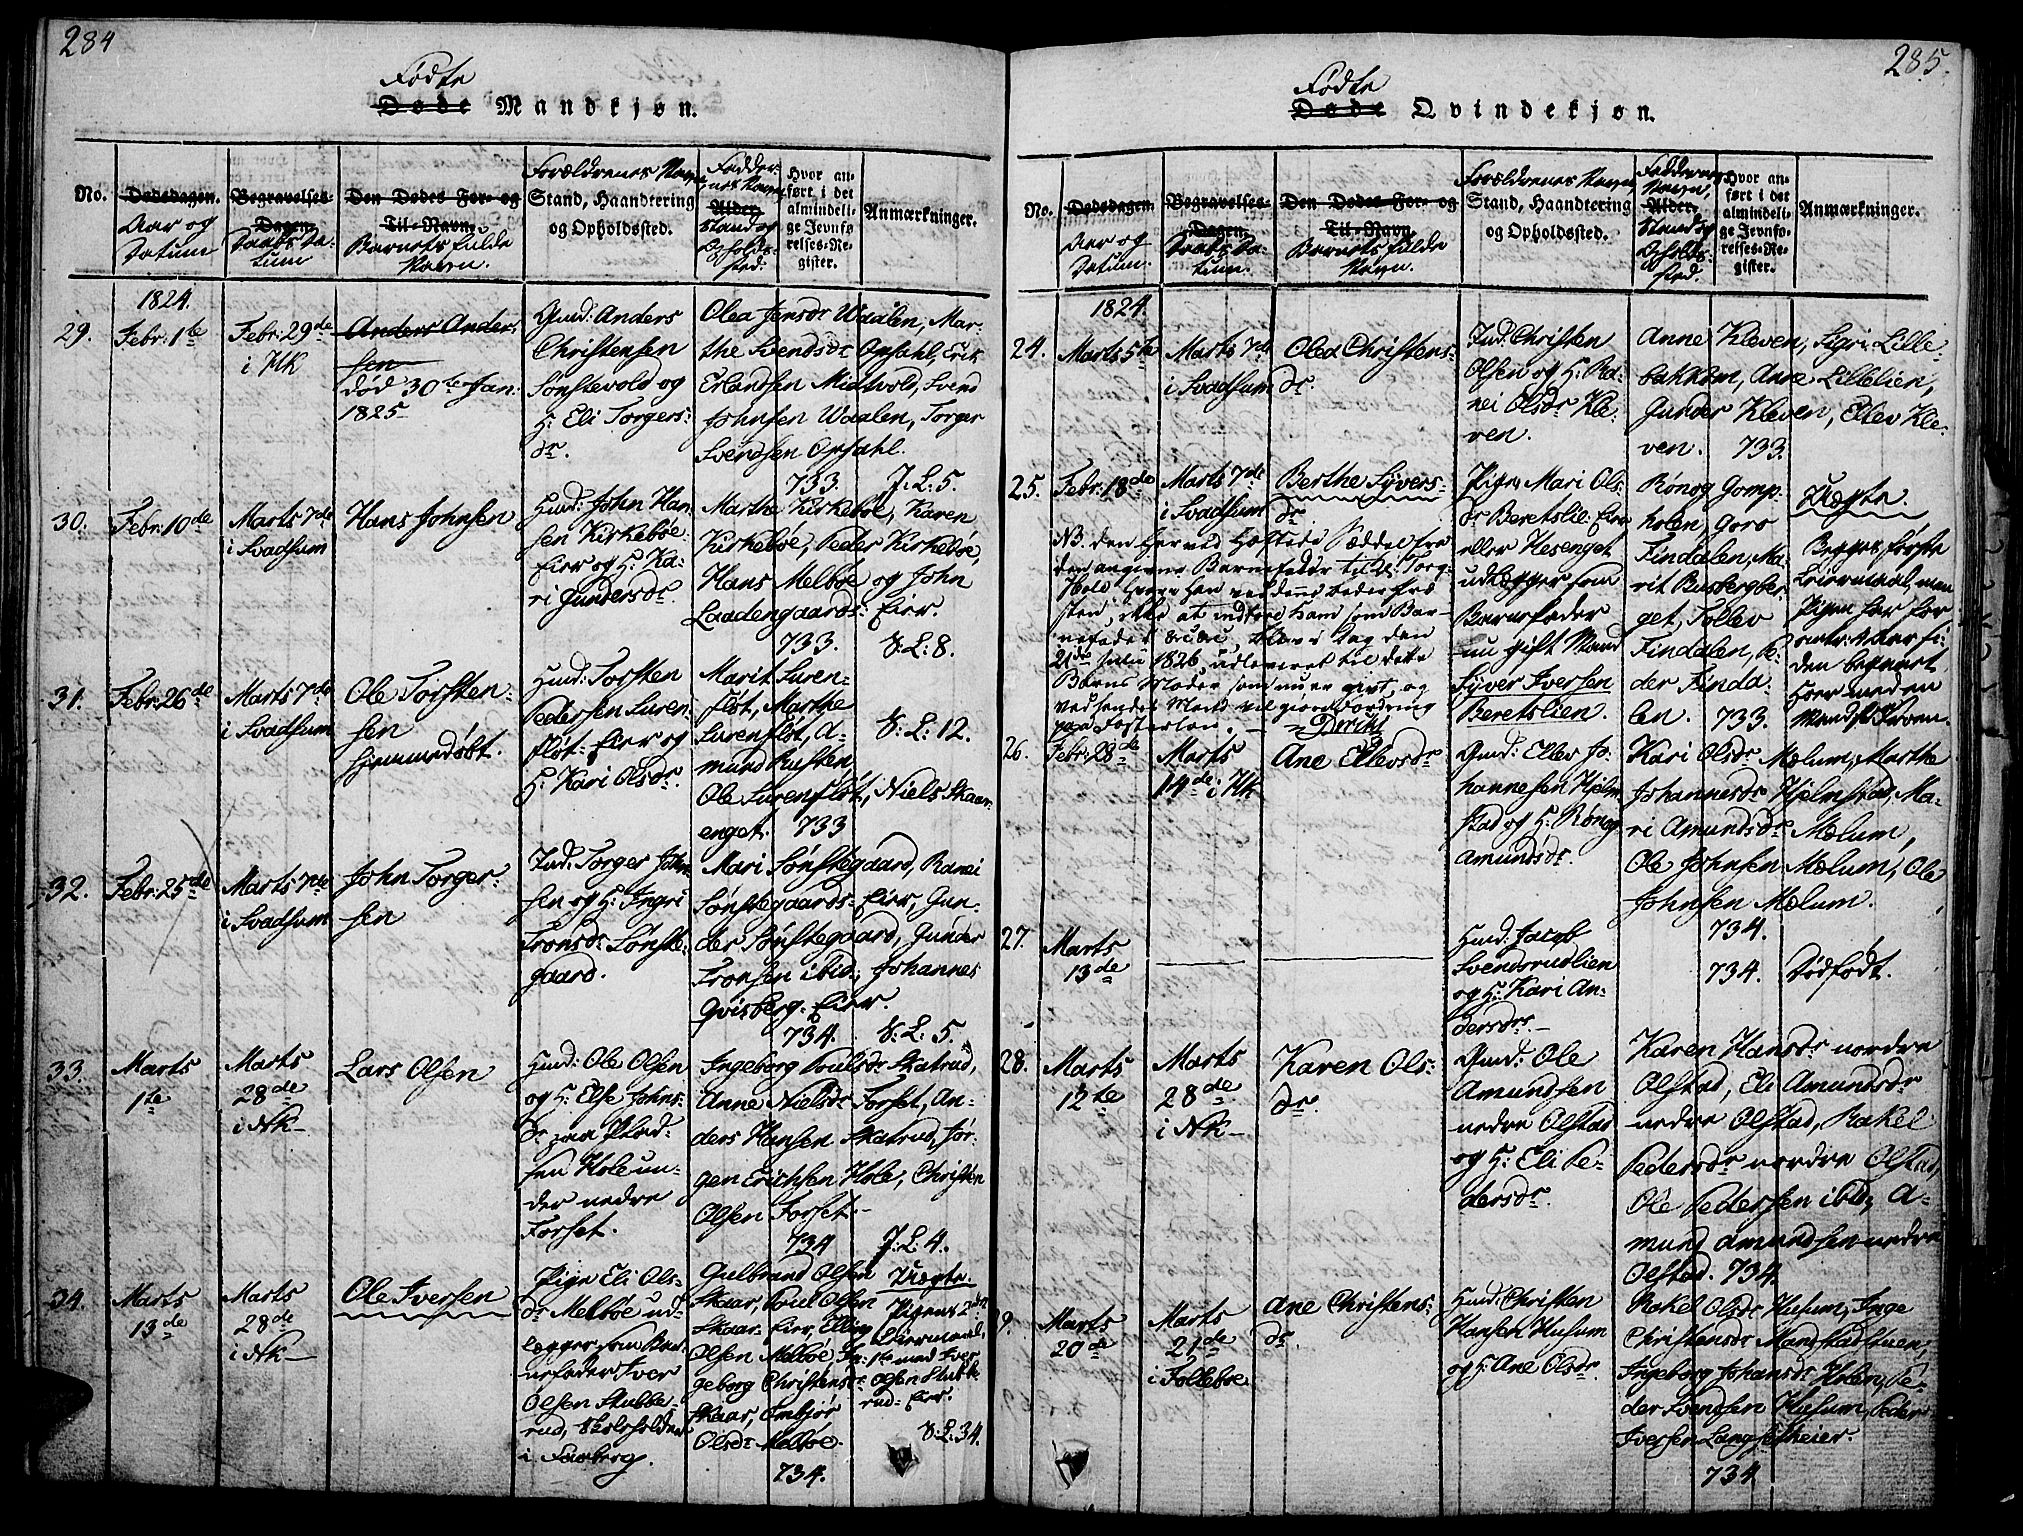 284
Fødte
Døde Mandkjøn.
No.
Dødsdagen.
Aar og
Datum
Begravelses-
Dagen.
Daabs Da-
tum
Den Dødes For- og
Til-Navn.
Barnets fulde
Navn.
Forældrenes Navn,
Stand, Haandtering
og Opholdssted.
Fadder-
nes Navn,
Alder.
Stand og
Opholds-
sted.
Hvor an-
ført i det
almindeli-
ge Jevnfø-
relses-Re-
gister.
Anmærkninger.
1824.
29.
Febr: 1te
Febr: 29de
i Hk
Anders Anders
sen
død 30te Jan:
1825
Gmd: Anders
Christensen
Sønstevold og
H: Eli Torgers:
dr.
Olea Jensdr Waalen, Mar-
the Svendsdr Opsahl, Erik
Erlandsen Midtvold, Svend
Johnsen Waalen, Torger
Svendsen Opsahl.
733. J. L: 5.
30.
Febr: 10de
Marts 7de
i Svadsum
Hans Johnsen
Huusmd: John Han-
sen Kirkebøe-
Eier og H: Ka-
ri Gundersdr.
Marthe Kirkebøe, Karen
Kirkebøe, Peder Kirkebøe,
Hans Melbøe og John
Laadengaards-Eier.
733. S: L: 8.
31.
Febr: 26de
Marts 7de
i Svadsum
Ole Torsten-
sen
hjemmedøbt.
Huusmd: Torsten
Pedersen Suren-
fløt-Eier og
H: Kari Olsdr.
Marit Suren-
fløt, Marthe
Surenfløt, A-
mund Rusten
Ole Surenfløt, Niels Skaar-
enget. 733
S: L: 12.
32.
Febr: 25de
Marts 7de
i Svadsum
John Torger-
sen
Ind: Torger John-
sen og H: Ingri
Tronsdr Sønste-
gaard.
Mari Sønstegaard, Ranei
Sønstegaards-Eier, Gun-
der Sønstegaard, Gunder
Tronsen ibid, Johannes
Qvisberg-Eier.
734. S: L: 5.
33.
Marts
1te
Marts
28de
i Nk
Lars Olsen
Huusmd: Ole Olsen
og H: Else Johns-
dr paa Plad-
sen Hole un-
der nedre
Forset.
Ingeborg Poulsdr Skatrud,
Anne Nielsdr Forset, An-
ders Hansen Skatrud, Jør-
gen Erichsen Hole, Christen
Olsen Forset.
734 J: L: 4.
34.
Marts
13de
Marts
28de
i Nk
Ole Iversen
Pigen Eli Ols-
dr Melbøe ud-
lægger som Bar-
nefader Iver
Olsen Stubbe-
rud, Skoleholder
i Faaberg.
Gulbrand Olsen
Skaar, Poul Olsen
Skaar-Eier, Elling
Olsen Melbøe, In-
geborg Christensdr
Skaar, Embjør
Olsdr Melbøe.
734.
Uægte
Pigens 2den
Leiermaal,
1te med Iver
Olsen Stubbe
rud-Eier.
S: L: 34.
285.
Fødte
Døde Qvindekjøn.
No.
Dødsdagen.
Aar og
Datum.
Begravelses-
Dagen.
Daabs Da-
tum.
Den Dødes For- og
Til-Navn
Barnets fulde
Navn.
Forældrenes Navn,
Stand, Haandtering
og Opholdssted.
Faddernes
Navn,
Alder.
Stand og
Opholds-
sted.
Hvor an-
ført i det
almindeli-
ge Jevnfø-
relses-Re-
gister.
Anmærkninger.
1824
24.
Marts 5te
Marts 7de
i Svadsum
Olea Christens-
dr.
Ind: Christen
Olsen og H: Ra-
nei Olsdr Kle-
ven.
Anne Kleven, Sigri Lille-
bakken, Anne Lillelien,
Gunder Kleven, Ellev Kle-
ven. 733.
25.
Febr: 18de
Marts 7de
i Svadsum
Berthe Syvers-
dr
NB. den herved hæftede Sæddel fra
den angivne Barnefader til
21de Julii 1826, udleveret til dette
Barns Moder som nu er givt, og
ved sendes Mand vil giøre Fordring
paa Fosterløn.
Pigen Mari Ols-
dr Beretslie-Eie
eller Hesenget
udlægger som
Barnefader
nu gift Mand
Syver Iversen
Beretslien.
Rønog Gomp-
holen, Goro
Findalen, Ma-
rit Busbergber-
get, Tollev
Findalen, Pe-
der Finda-
len. 733.
Uægte.
Begges første
Leiermaal, men
Pigen har for
den begaaet
Hoer med en
26.
Febr: 28de
Marts
14de i Hk
Ane Ellevsdr
Gmd: Ellev Jo-
hannesen Hjelm-
stad og H: Rønog
Amundsdr.
Kari Olsdr Mælum, Marthe
Johannesdr Hjelmstad, Ma-
ri Amundsdr Mælum,
Ole Johnsen Mælum, Ole
Johnsen Mælum.
734.
27.
Marts
13de
Huusmd: Jacob
Svendsrudlien
og H: Kari An-
dersdr.
734.
Dødfødt.
28.
Marts
12te
Marts
28de
i Nk
Karen Ols-
dr.
Gmd: Ole
Amundsen
nedre Olstad
og H: Eli Pe-
dersdr.
Karen Hansdr nordre
Olstad, Eli Amundsdr
nedre Olstad, Rakel
Pedersdr nordre Olstad,
Ole Pedersen ibid, A-
mund Amundsen nedre
Olstad. 734.
9.
Marts
20de
Marts
21de
i Følleboe
Ane Christens-
dr.
Huusmd: Christen
Hansen Husum
og H: Ane Olsdr.
Rakel Olsdr Husum, Inge
Christensdr Mandstadstuen,
Ingeborg Johansdr Holen, Pe-
der Svendsen Husum, Peder
Iversen Langsetheier.
734